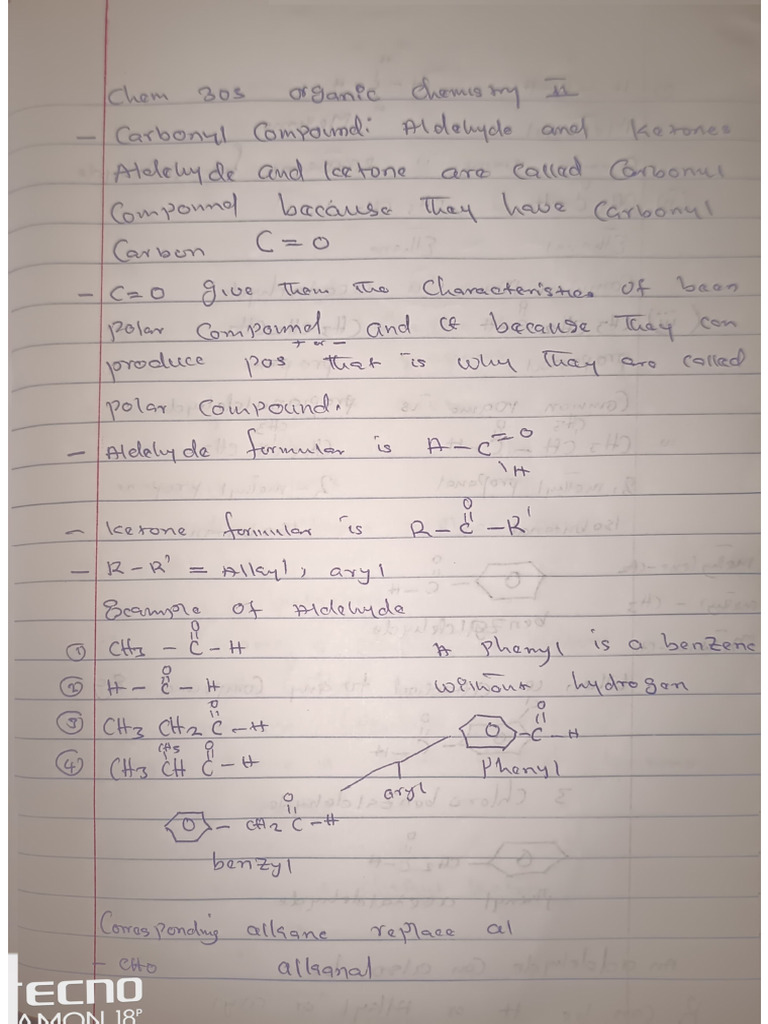 Chem 305 organic chemistry II
- Carbonyl Compound: Aldehyde and Ketones
Aldehyde and Ketone are called Carbonyl
Compound because they have Carbonyl
Carbon C=O
- C=O give them the Characteristics of been
polar compound and because they can
+ or -
produce pos that is why they are called
polar compound.
- Aldehyde formular is A-C=O
H
O
- Ketone formular is R-C-R'
- R-R' = Alkyl, aryl
Example of Aldehyde
O
① CH3 - C - H A Phenyl is a benzene
O
② H - C - H without hydrogen
O O
③ CH3 CH2 C - H C - H
CH3 O
④ CH3 CH C - H Phenyl
aryl
O
CH2 C - H
benzyl
Corresponding alkane replace al
- CHO alkanal
TECNO
CAMON 18P